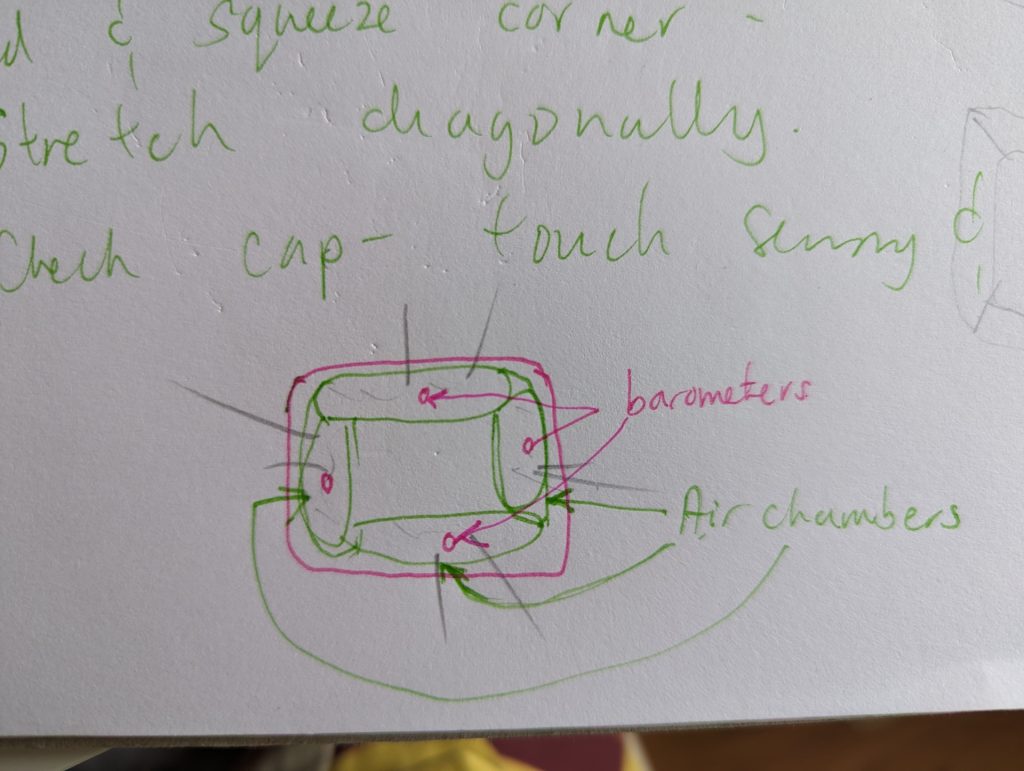 d & squeeze corner -
Stretch diagonally.
Check cap- touch sensing &
barometers
Air chambers